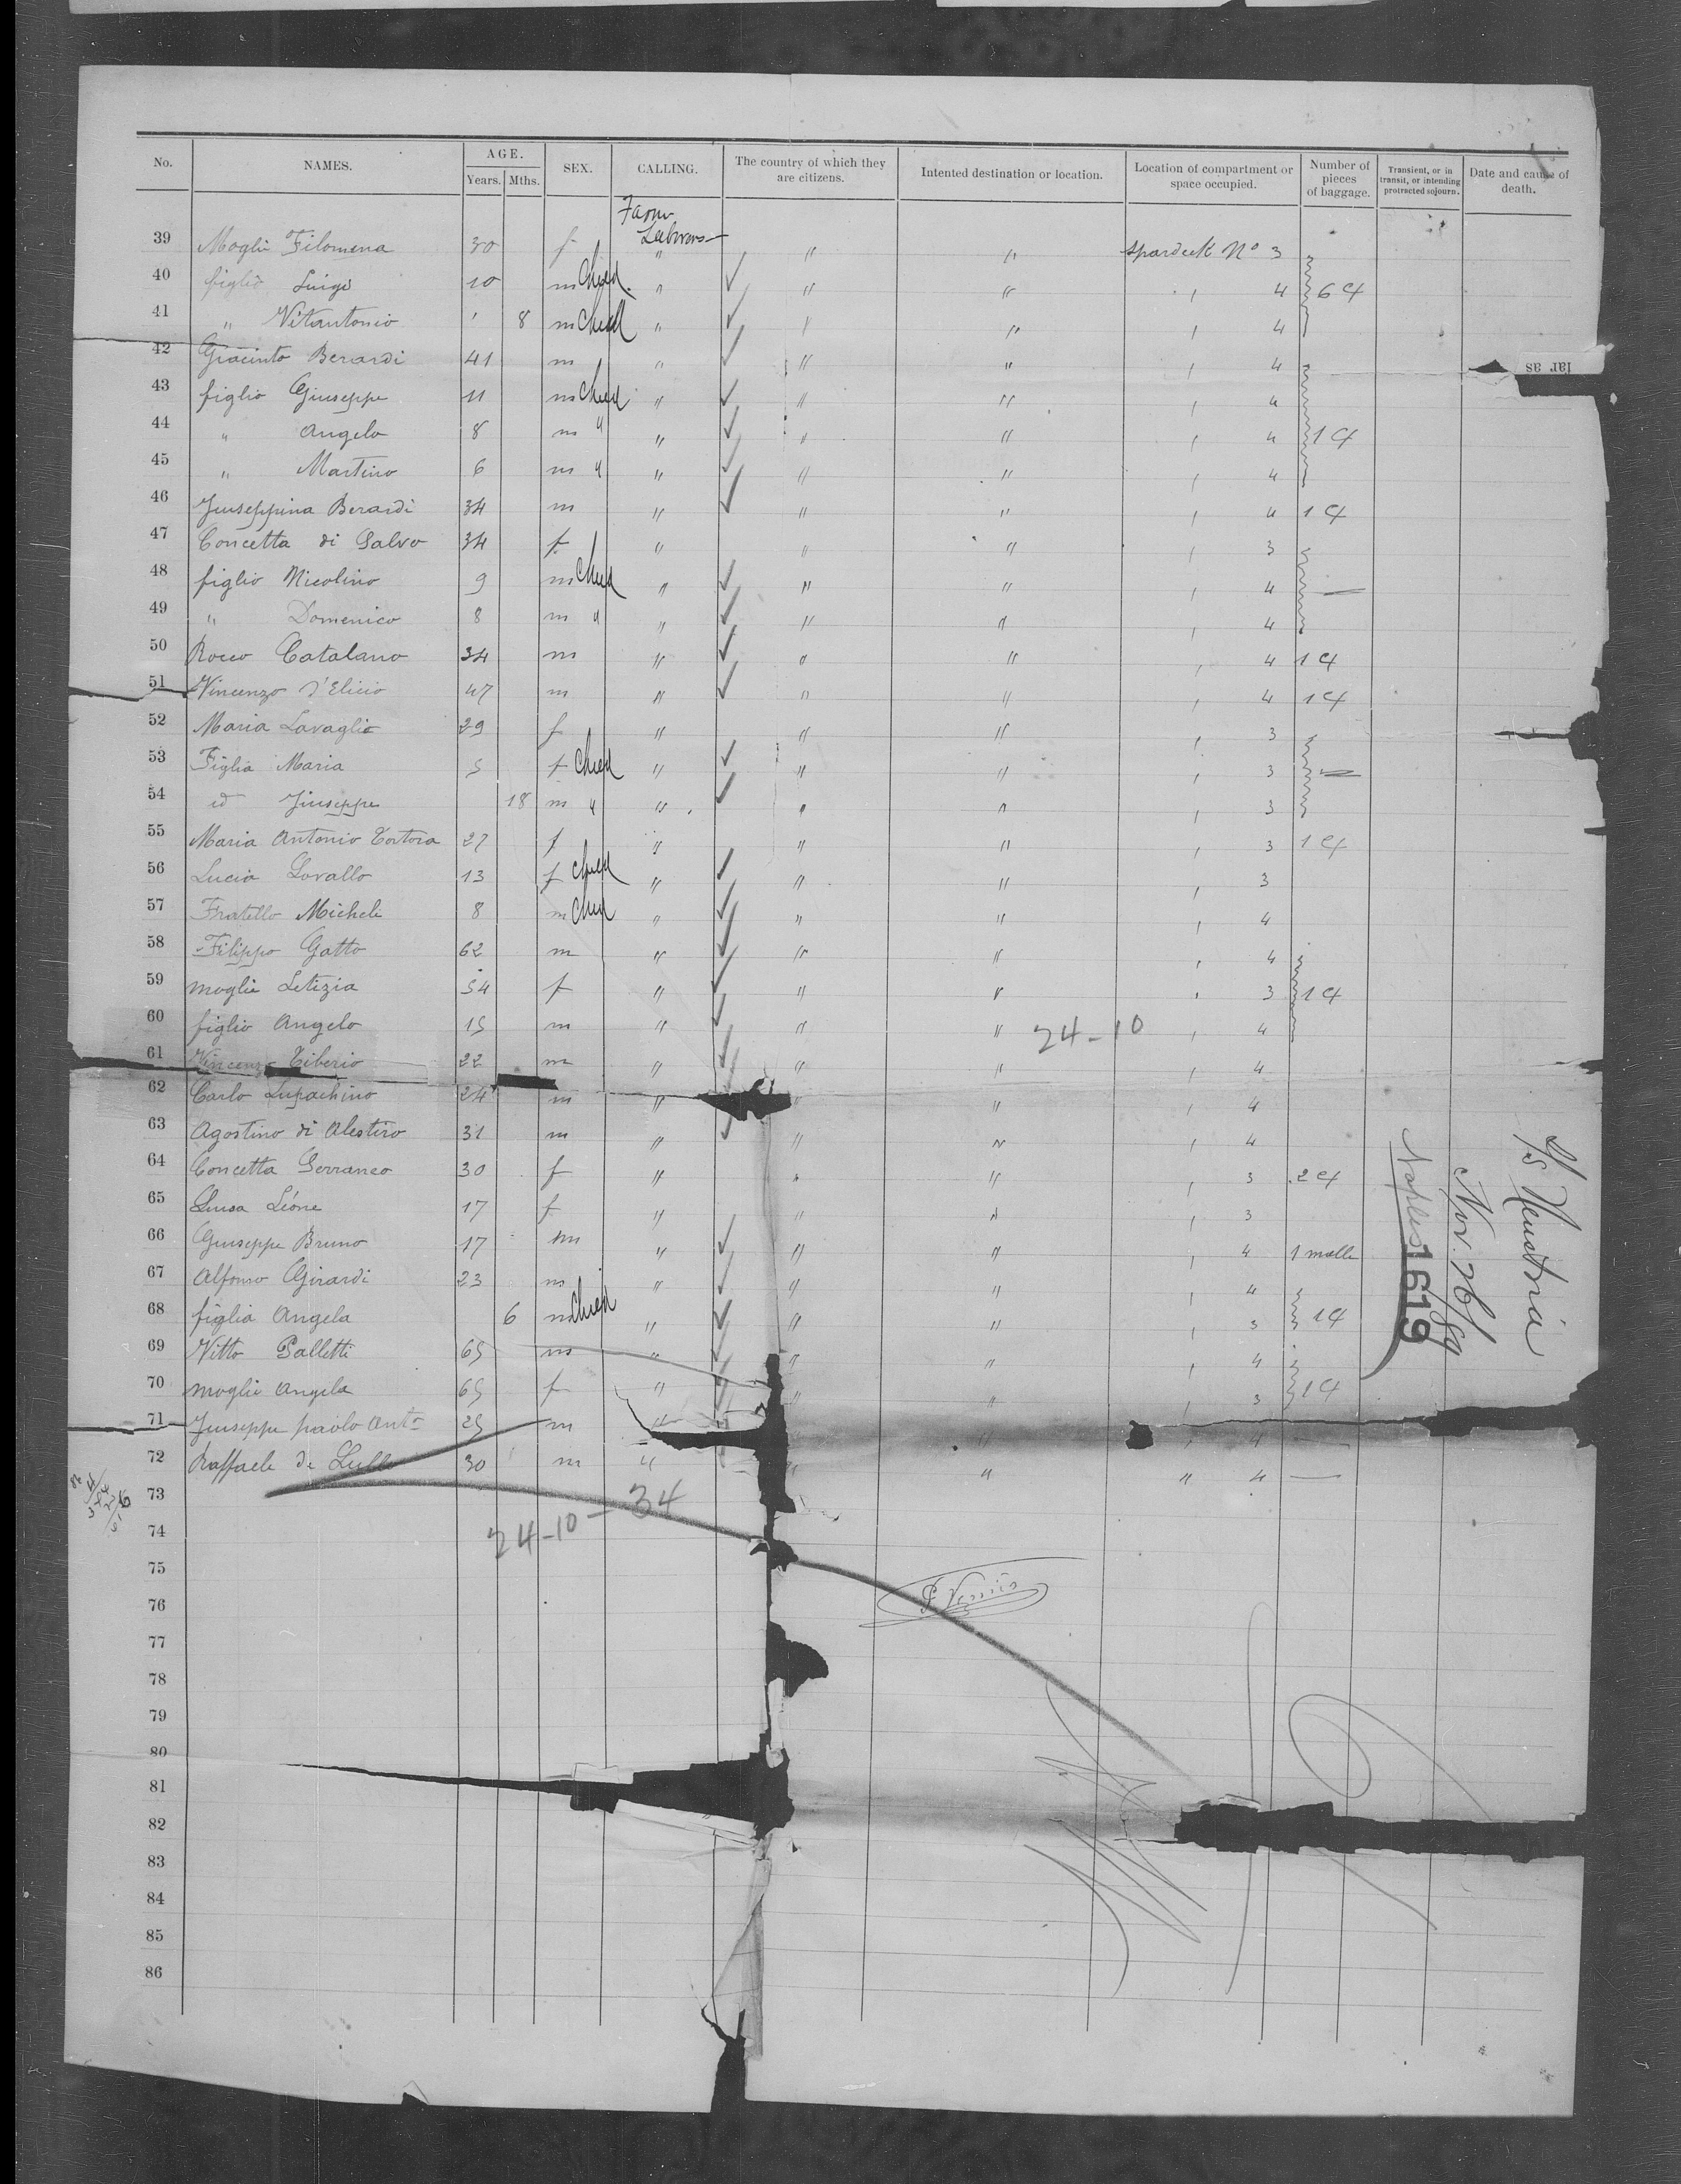 No. NAMES. AGE. Years. Mths. SEX. CALLING. The country of which they are citizens. Intented destination or location. Location of compartment or space occupied. Number of pieces of baggage. Transient, or in transit, or intending protracted sojourn. Date and cause of death.
Farm
Laborers
39 Moglie Filomena 30 f " " " spardeck No 3
40 figlio Luigi 10 m Child " " " 4 6 C
41 " Vitantonio 8 m Child " " " 4
42 Giacinto Berardi 41 m " " " 4
43 figlio Giuseppe 11 m Child " " " 4
44 " Angelo 8 m " " " " 4 1 C
45 " Martino 6 m " " " " 4
46 Giuseppina Berardi 34 m " " " 4 1 C
47 Concetta di Salvo 34 f " " " 3
48 figlio Nicolino 9 m Child " " " 4 —
49 " Domenico 8 m " " " " 4
50 Rocco Catalano 34 m " " " 4 1 C
51 Vincenzo d'Elicio 47 m " " " 4 1 C
52 Maria Lavaglio 29 f " " " 3
53 Figlia Maria 5 f Child " " " 3 —
54 id Giuseppe 18 m " " " " 3
55 Maria Antonio Tortora 27 f " " " 3 1 C
56 Lucia Lovallo 13 f Child " " " 3
57 Fratello Michele 8 m Child " " " 4
58 Filippo Gatto 62 m " " " 4
59 moglie Letizia 54 f " " " 3 1 C
60 figlio Angelo 15 m " " " 4
24-10
61 Vincenzo Tiberio 22 m " " " 4
62 Carlo Lupachino 24 m " " " 4
63 Agostino di Alestiro 31 m " " " 4
64 Concetta Serraneo 30 f " " " 3 2 C
65 Luisa Léone 17 f " " " 3
66 Giuseppe Bruno 17 m " " " 4 1 malle
67 Alfonso Girardi 23 m " " " 4
68 figlia Angela 6 m Child " " " 3 1 C
69 Vitto Palletti 65 m " " " 4
70 moglie Angela 65 f " " " 3 1 C
71 Giuseppe paolo Anto 25 m " " " 4 —
72 Raffaele de Lullo 30 m " " " " 4 —
73
24-10-34
74
75
76
77
78
79
80
81
82
83
84
85
86
S/s Neustria
Nov. 26/89
Naples
1619
lar as